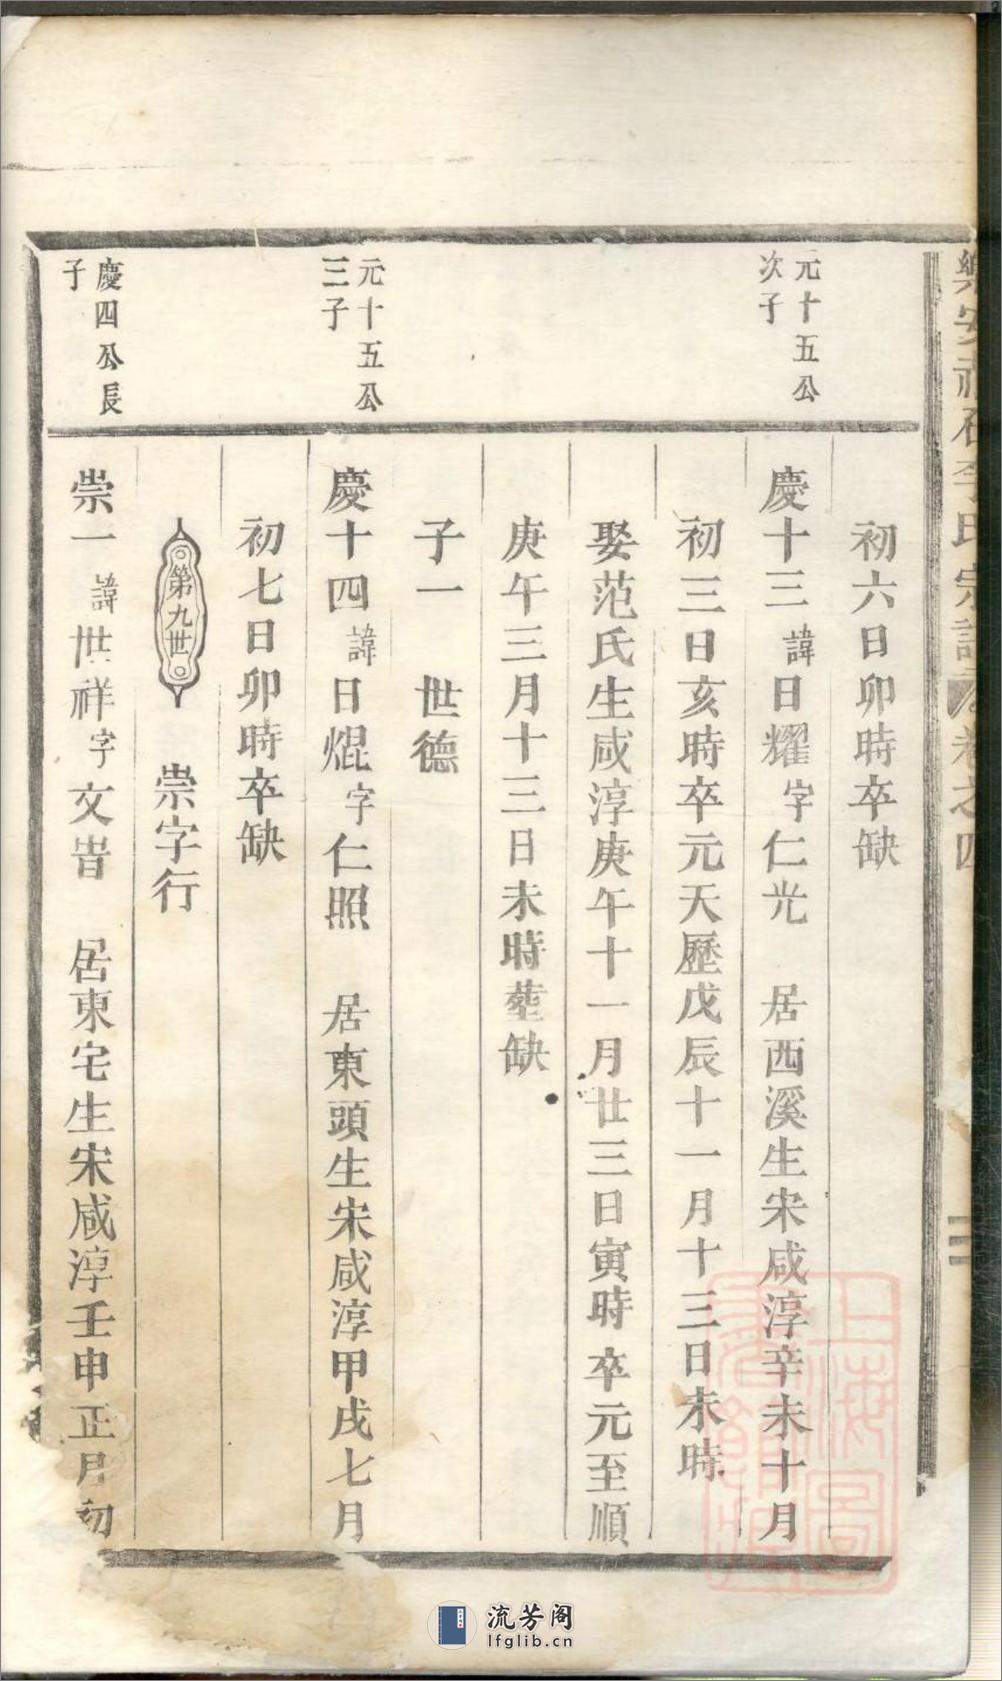 初六日卯時卒缺
元十五公
次子
慶十三諱日耀字仁光　居西溪生宋咸淳辛未十月
初三日亥時卒元天歷戊辰十一月十三日未時
娶范氏生咸淳庚午十一月廿三日寅時卒元至順
庚午三月十三日未時塟缺
子一　世德
元十五公
三子
慶十四諱日焜字仁照　居東頭生宋咸淳甲戌七月
初七日卯時卒缺
第九世　崇字行
慶四公長
子
崇一諱世祥字文旹　居東宅生宋咸淳壬申正月初
上海圖
流芳阁
lfglib.cn